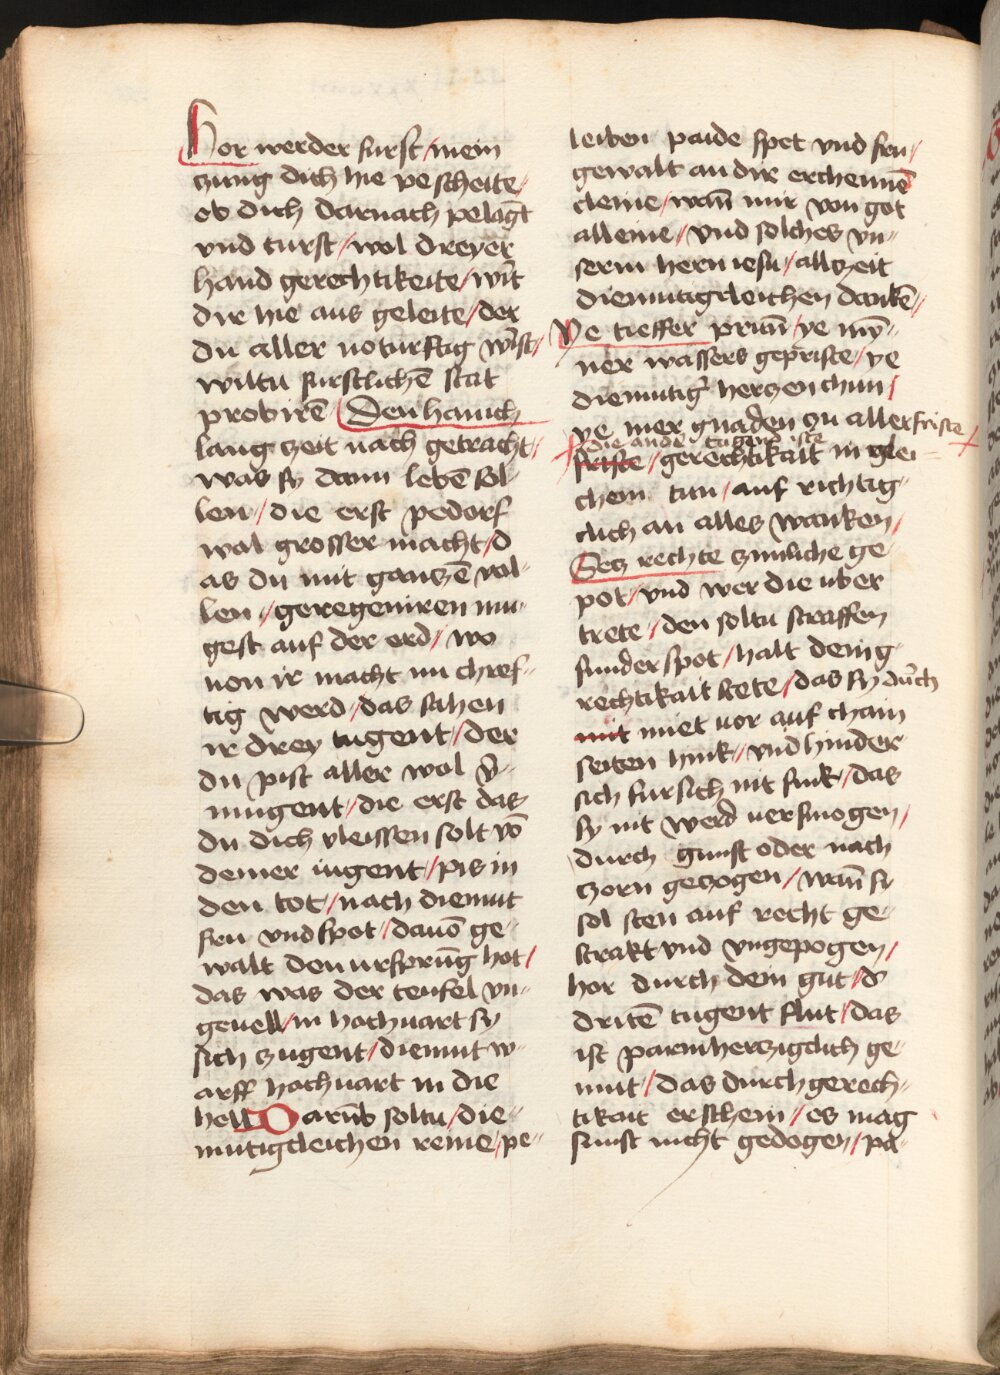 Hor werder furst / mein
zung dich hie pescheite /
ob dich darnach pelagt̄
vnd turst / wol dreyer
hand gerechtikeite / wirt
dir hie aus geleite / der
du aller noturftig wirst /
wiltu furstlichē stat
probirē / Den han ich
lang zeit nach getracht /
was sy dann lebē sol-
len / die erst pedorf
wal grosser macht / d
as du mit ganczē vol-
len / geregeniren mu-
gest auf der erd / wo
uon ir macht nu chref-
tig werd / das sahen
ir drey tugent / der
du pist aller wol v̄-
mugent / die erst das
du dich vleissen solt vō
deiner iugent / pis in
den tot / nach diemut
fru vnd spot / dauō ge-
walt den ursprūg hot /
das was der teufel vn-
geuell / in hochuart sy
sich zugent / diemut w-
arff hochuart in die
hell Darūb soltu / die-
mutigcleichen reine / pe-
leiben paide spot vnd fru /
gewalt an dir erchennē
cleine / wañ mir von got
alleine / vnd solches vn-
serm hern iesu / allzeit
diemutigcleichen dankē /
Ye tieffer prunn / ye myn̄-
ner wassers gepriste / ye
diemutig' herzen chun /
ye mer gnaden zu aller friste
die ander tugend iste
friste / gerechtikait in glei-
chem tun / auf richtig-
clich an alles wanken /
Secz rechte zimliche ge-
pot / vnd wer die uber
trete / den soltu straffen
sunder spot / halt dein g-
rechtikait stete / das sy durch
mit miet uor auf chain
seiten hink / vnd hinder
sich fur sich nit sink / das
sy nit werd uersmogen /
durch gunst oder nach
zorn gezogen / wañ si
sol sten auf recht ge-
strakt vnd vngepogen /
hor durch dein gut / d'
dritē tugent flut / das
ist parmherziglich ge-
mut / das durch gerech-
tikait erschein / es mag
sunst nicht gedogen / pa-